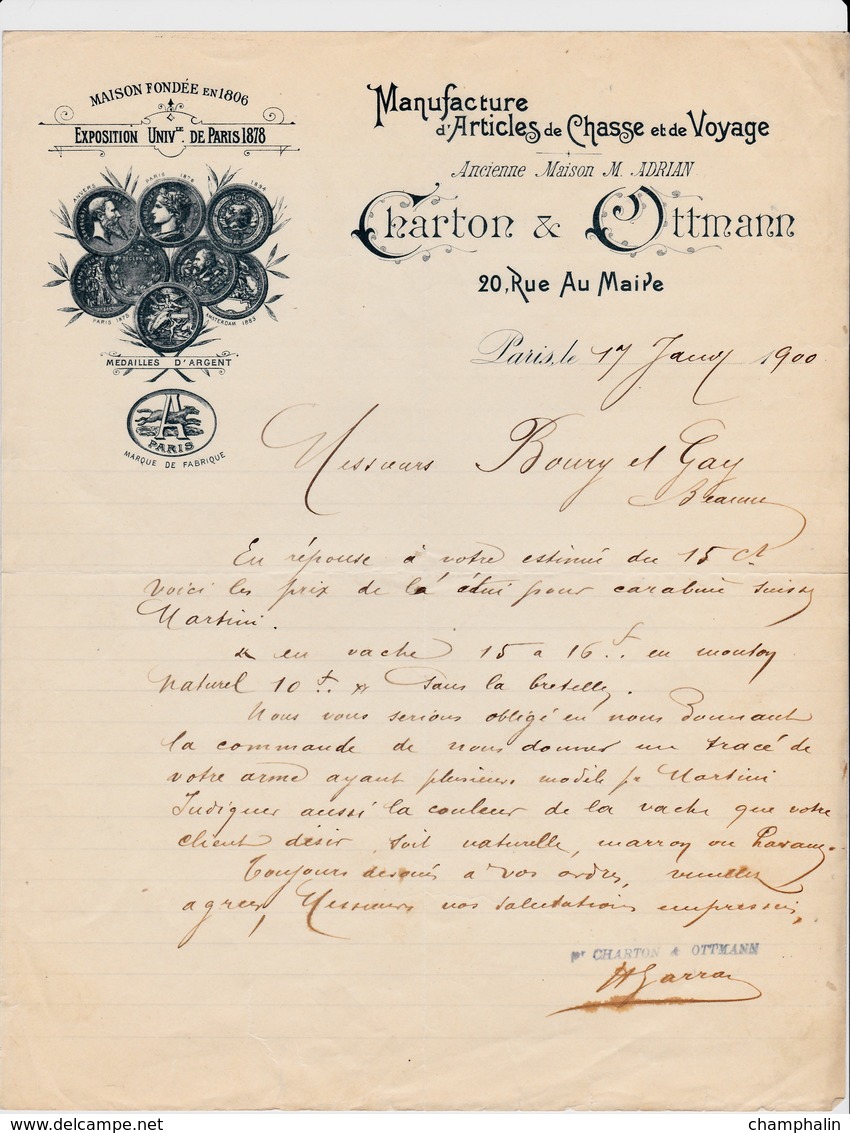 MAISON FONDÉE EN 1806
EXPOSITION UNIV.LE DE PARIS 1878
ANVERS
PARIS 1878
PARIS 1875
AMSTERDAM 1883
MEDAILLES D'ARGENT
A
PARIS
MARQUE DE FABRIQUE
Manufacture
d'Articles de Chasse et de Voyage
Ancienne Maison M. ADRIAN
Charton & Ottmann
20, Rue Au Maire
Paris, le 17 Janv 1900
Messieurs Boury et Gay
Beaune
En réponse à votre estimée du 15 ct
voici les prix de la étui pour carabine suisse
Martini.
en vache 15 a 16 f. en mouton
naturel 10 f. sans la bretelle.
Nous vous serions obligé en nous donnant
la commande de nous donner un tracé de
votre arme ayant plusieurs modèle pr Martini
Indiquer aussi la couleur de la vache que votre
client désir, soit naturelle, marron ou havane.
Toujours à vos ordres, veuillez
agréer, Messieurs nos salutations empressées,
pr CHARTON & OTTMANN
champhalin
delcampe.net